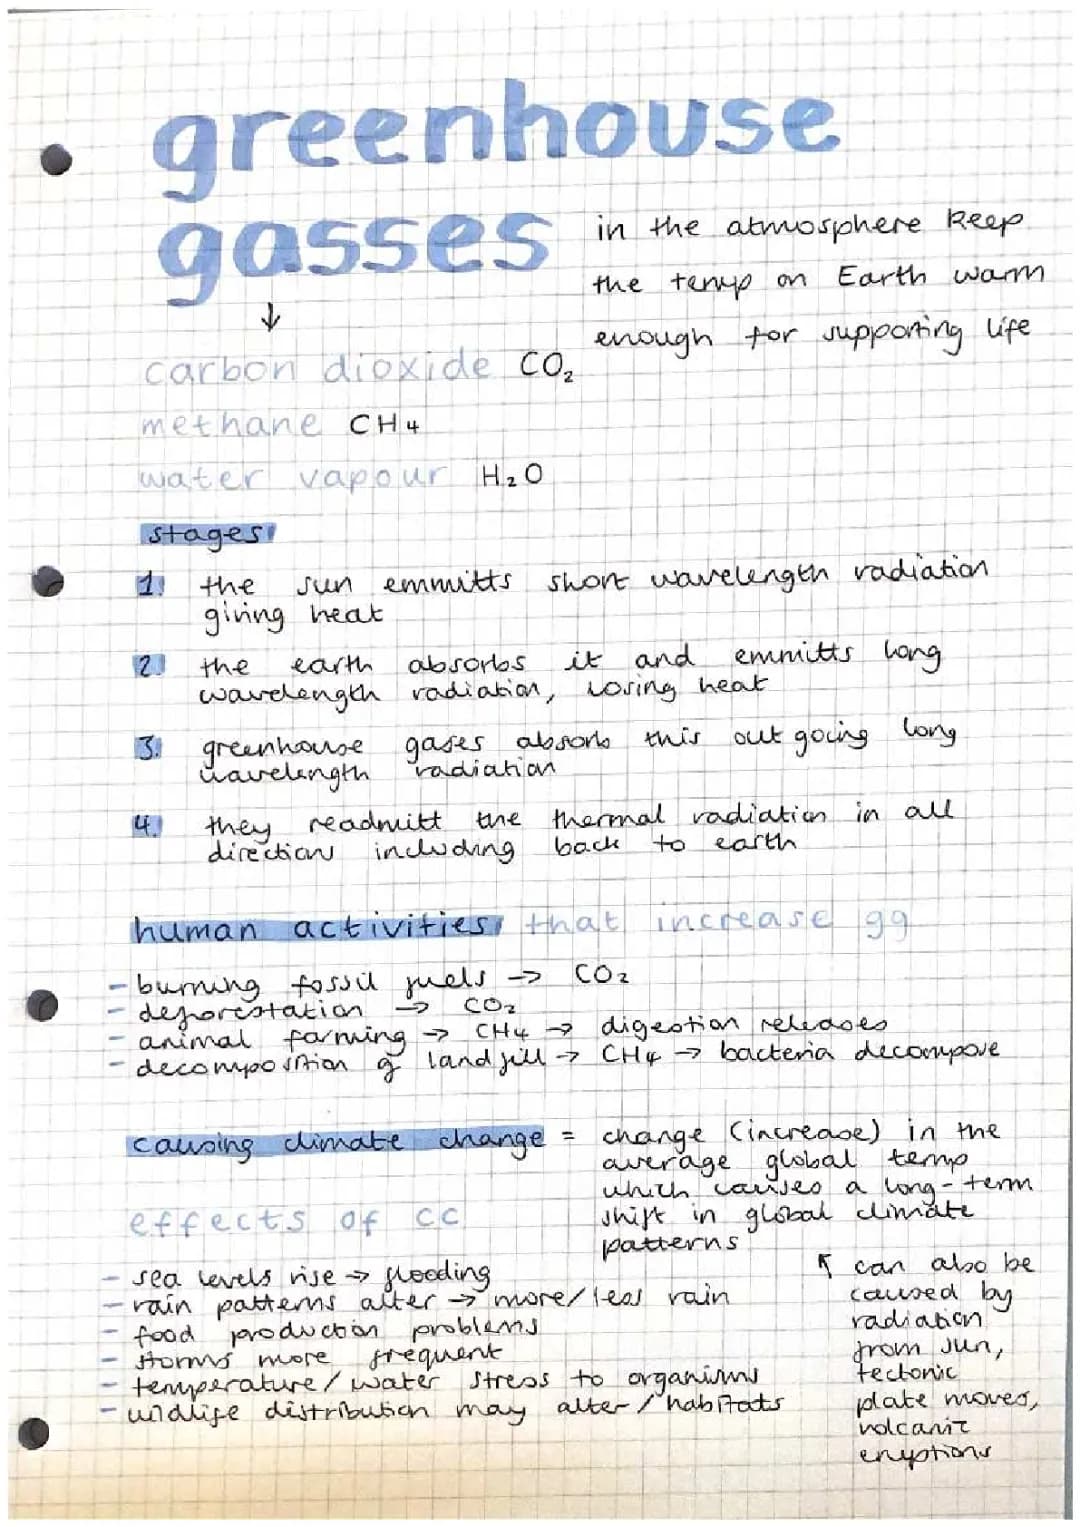 greenhouse
gasses
in the atmosphere keep
the temp on Earth warm
enough for supporting life
↓
carbon dioxide CO₂
methane CH4
water vapour H₂O
stages
1. the sun emmitts short wavelength radiation
giving heat
2. the earth absorbs it and emmitts long
wavelength radiation, losing heat
3. greenhouse gases absorb this out going long
wavelength radiation
4. they readmitt the thermal radiation in all
directions including back to earth
human activities that increase gg
- burning fossil fuels → CO₂
- deforestation → CO₂
- animal farming → CH4 → digestion releases
- decomposition of landfill → CH4 → bacteria decompose
causing climate change = change (increase) in the
average global temp
which causes a long-term
shift in global climate
patterns
effects of cc
- sea levels rise → flooding
- rain patterns alter → more/less rain
- food production problems
- storms more frequent
- temperature/water stress to organisms
- wildlife distribution may alter/habitats
↖ can also be
caused by
radiation
from sun,
tectonic
plate moves,
volcanic
eruptions